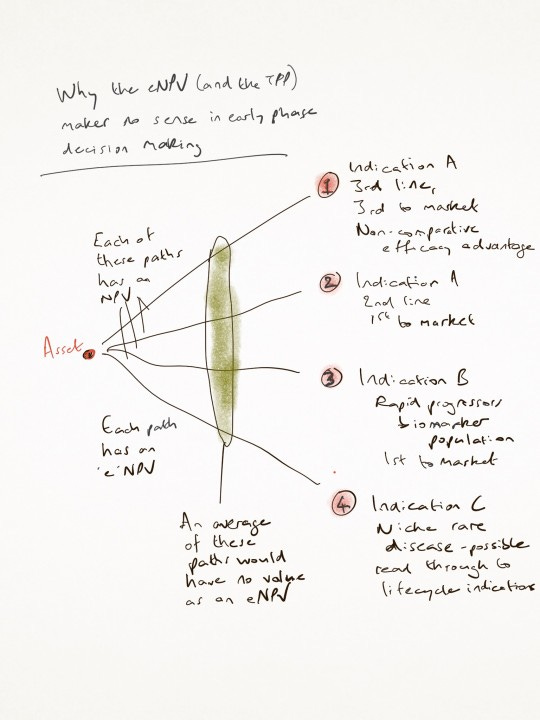 Why the eNPV (and the TPP)
makes no sense in early phase
decision making
Each of
these paths
has an
NPV
Asset
Each path
has an
'e' NPV
An average
of these
paths would
have no value
as an eNPV
1
Indication A
3rd line,
3rd to market
Non-comparative
efficacy advantage
2
Indication A
2nd line
1st to market
3
Indication B
Rapid progressors
biomarker
population
1st to market
4
Indication C
Niche rare
disease - possible
read through to
lifecycle indications